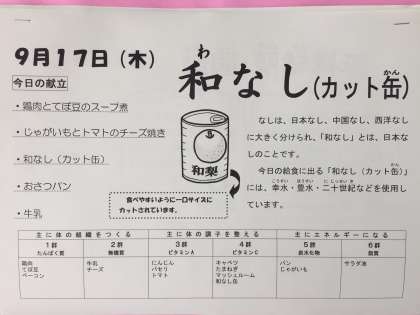 9月17日（木）
今日の献立
・鶏肉とてぼ豆のスープ煮
・じゃがいもとトマトのチーズ焼き
・和なし（カット缶）
・おさつパン
・牛乳
わ
和なし（カット缶）
かん
和梨
食べやすいように一口サイズに
カットされています。
なしは、日本なし、中国なし、西洋なし
に大きく分けられ、「和なし」とは、日本な
しのことです。
かん
今日の給食に出る「和なし（カット缶）」
こうすい ほうすい にじっせいき
には、幸水・豊水・二十世紀などを使用し
ています。
主に体の組織をつくる 主に体の調子を整える 主にエネルギーになる
1群 2群 3群 4群 5群 6群
たんぱく質 無機質 ビタミンA ビタミンC 炭水化物 脂質
鶏肉 牛乳 にんじん キャベツ パン サラダ油
てぼ豆 チーズ パセリ たまねぎ じゃがいも
ベーコン トマト マッシュルーム
和なし缶